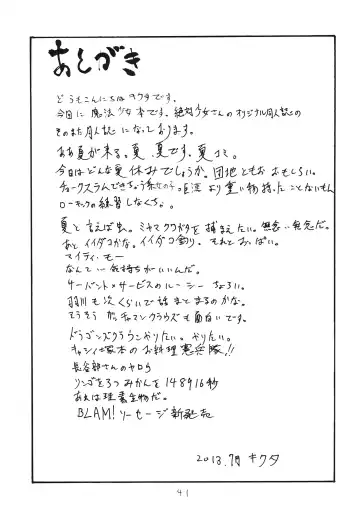 あとがき
どうもこんにちはキクタです。
今回は魔法少女本です。絶対少女さんのオリジナル同人誌の
そのまた同人誌になっております。
ああ夏が来る。夏、夏です、夏コミ。
今回はどんな夏休みでしょうか。団地ともおおもしろい。
チョークスラムできちゃう系女の子。 より重い物持ったことないもん
ローキックの練習しなくちゃ。
夏と言えば虫。ミヤマクワガタを捕まえたい。無念
あと イイダコかな。イイダコ釣り、それとおっぱい。
マイティ・モー
なんていい気持ちがいいんだ。
サーバント×サービスのルーシー ちょろい。
羽川も次くらいで話まとまるのかな。
そうそう ガッチャマンクラウズも面白いです。
ドラゴンズクラウンやりたい。やりたい。
キャシィ塚本のお料理憲兵隊!!
長谷部さんのヤロウ
リンゴを3つみかんを148916秒
あれは珪素生物だ。
BLAM!ソーセージ新発売
2013.7月 キクタ
41